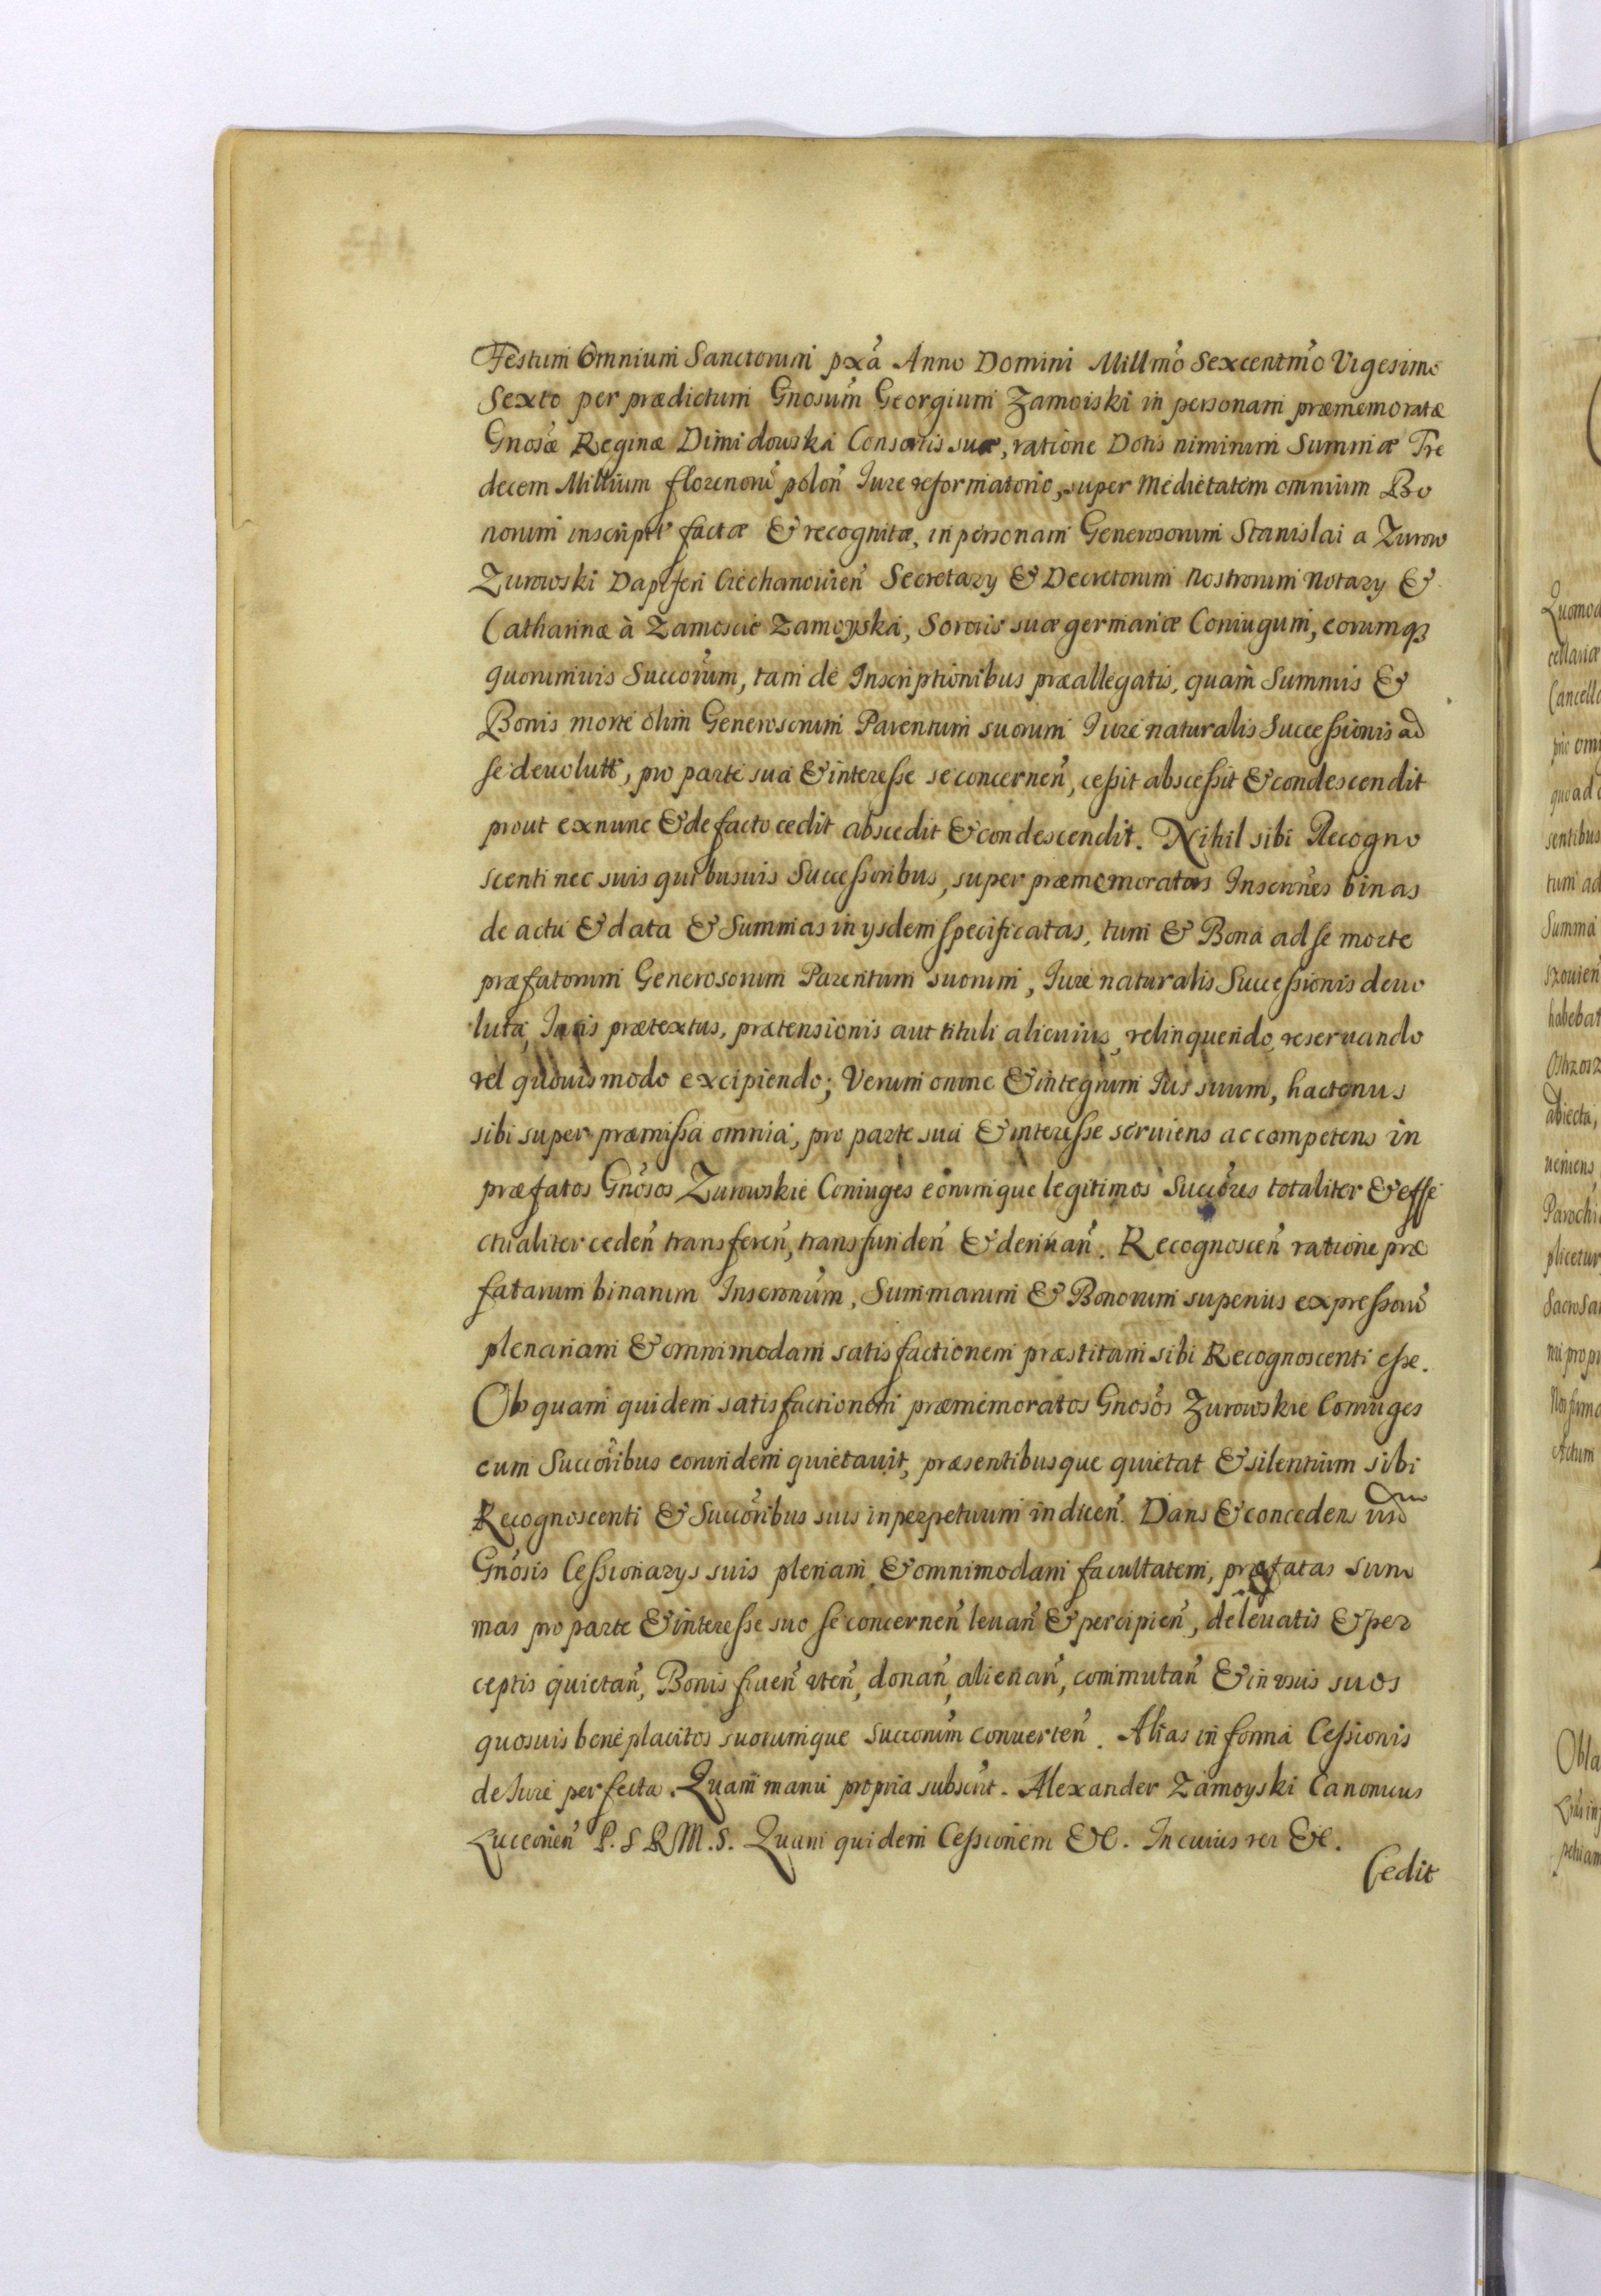 Festum Omnium Sanctorum pxã Anno Domini Millmõ Sexcentmõ Vigesimo
Sexto per prædictum Gnosum̃ Georgium Zamoiski in personam præmemoratæ
Gnosæ̃ Reginæ Dimidowska Consortis suæ, ratione Dotis nimirum Summæ Tre
decem Millium florenorũ polon̄ Iure reformatorio, super medietatem omnium Bo
norum inscriptt factæ & recognitæ, in personam Generosorum Stanislai a Zurow
Zurowski Dapiferi Ciechanouien̄ Secretary & Decretorum Nostrorum Notary &
Catharinæ à Zamoscie Zamoyska, Sororis suæ germanæ Coniugum, eorumq₃
quorumuis Succorũm, tam de Inscriptionibus præallegatis, quam Summis &
Bonis morte olim Generosorum Parentum suorum Iure naturalis Successionis ad
se deuolutt, pro parte sua & interesse se concernen̄, cessit abscessit & condescendit
prout exnunc & de facto cedit abscedit & condescendit. Nihil sibi Recogno
scenti nec suis quibusuis Successoribus, super præmemoratas Inscrnẽs binas
de actu & data & Summas in ysdem specificatas, tum & Bona ad se morte
præfatorum Generosorum Parentum suorum, Iure naturalis Successionis deuo
luta, Iuris prætextus, prætensionis aut tituli alicuius, relinquendo, reseruando
vel quouismodo excipiendo; Verum omne & integrum Ius suum, hactenus
sibi super præmissa omnia, pro parte sua & interesse seruiens ac competens in
præfatos Gnõsos Zurowskie Coniuges eorumque legitimos Succõres totaliter & effe
ctualiter ceden̄ transferen̄, transfunden̄ & deriuan̄. Recognoscen̄ ratione præ
fatarum binarum Inscrnũm, Summarum & Bonorum superius expressorũ
plenariam & omnimodam satisfactionem præstitam sibi Recognoscenti esse.
Ob quam quidem satisfactionem præmemoratos Gnosõs Zurowskie Coniuges
cum Succõribus eorundem quietauit, præsentibusque quietat & silentium sibi
Recognoscenti & Succõribus suis in perpetuum indicen̄. Dans & concedens
Gnõsis Cessionarys suis plenam & omnimodam facultatem, præfatas Sum
mas pro parte & interesse suo se concernen̄ leuan̄ & percipien̄, de leuatis & per
ceptis quietan̄, Bonis fruen̄ vten̄, donan̄, alienan̄, commutan̄ & in vsus suos
quosuis beneplacitos suorumque Succorum̃ conuerten̄. Alias in forma Cessionis
de Iure perfecta. Quam manu propria subscrt̃. Alexander Zamoyski Canonicus
Lucceorien̄ P. S R M. S. Quam quidem Cessionem &c. In cuius rei &c.
Cedit